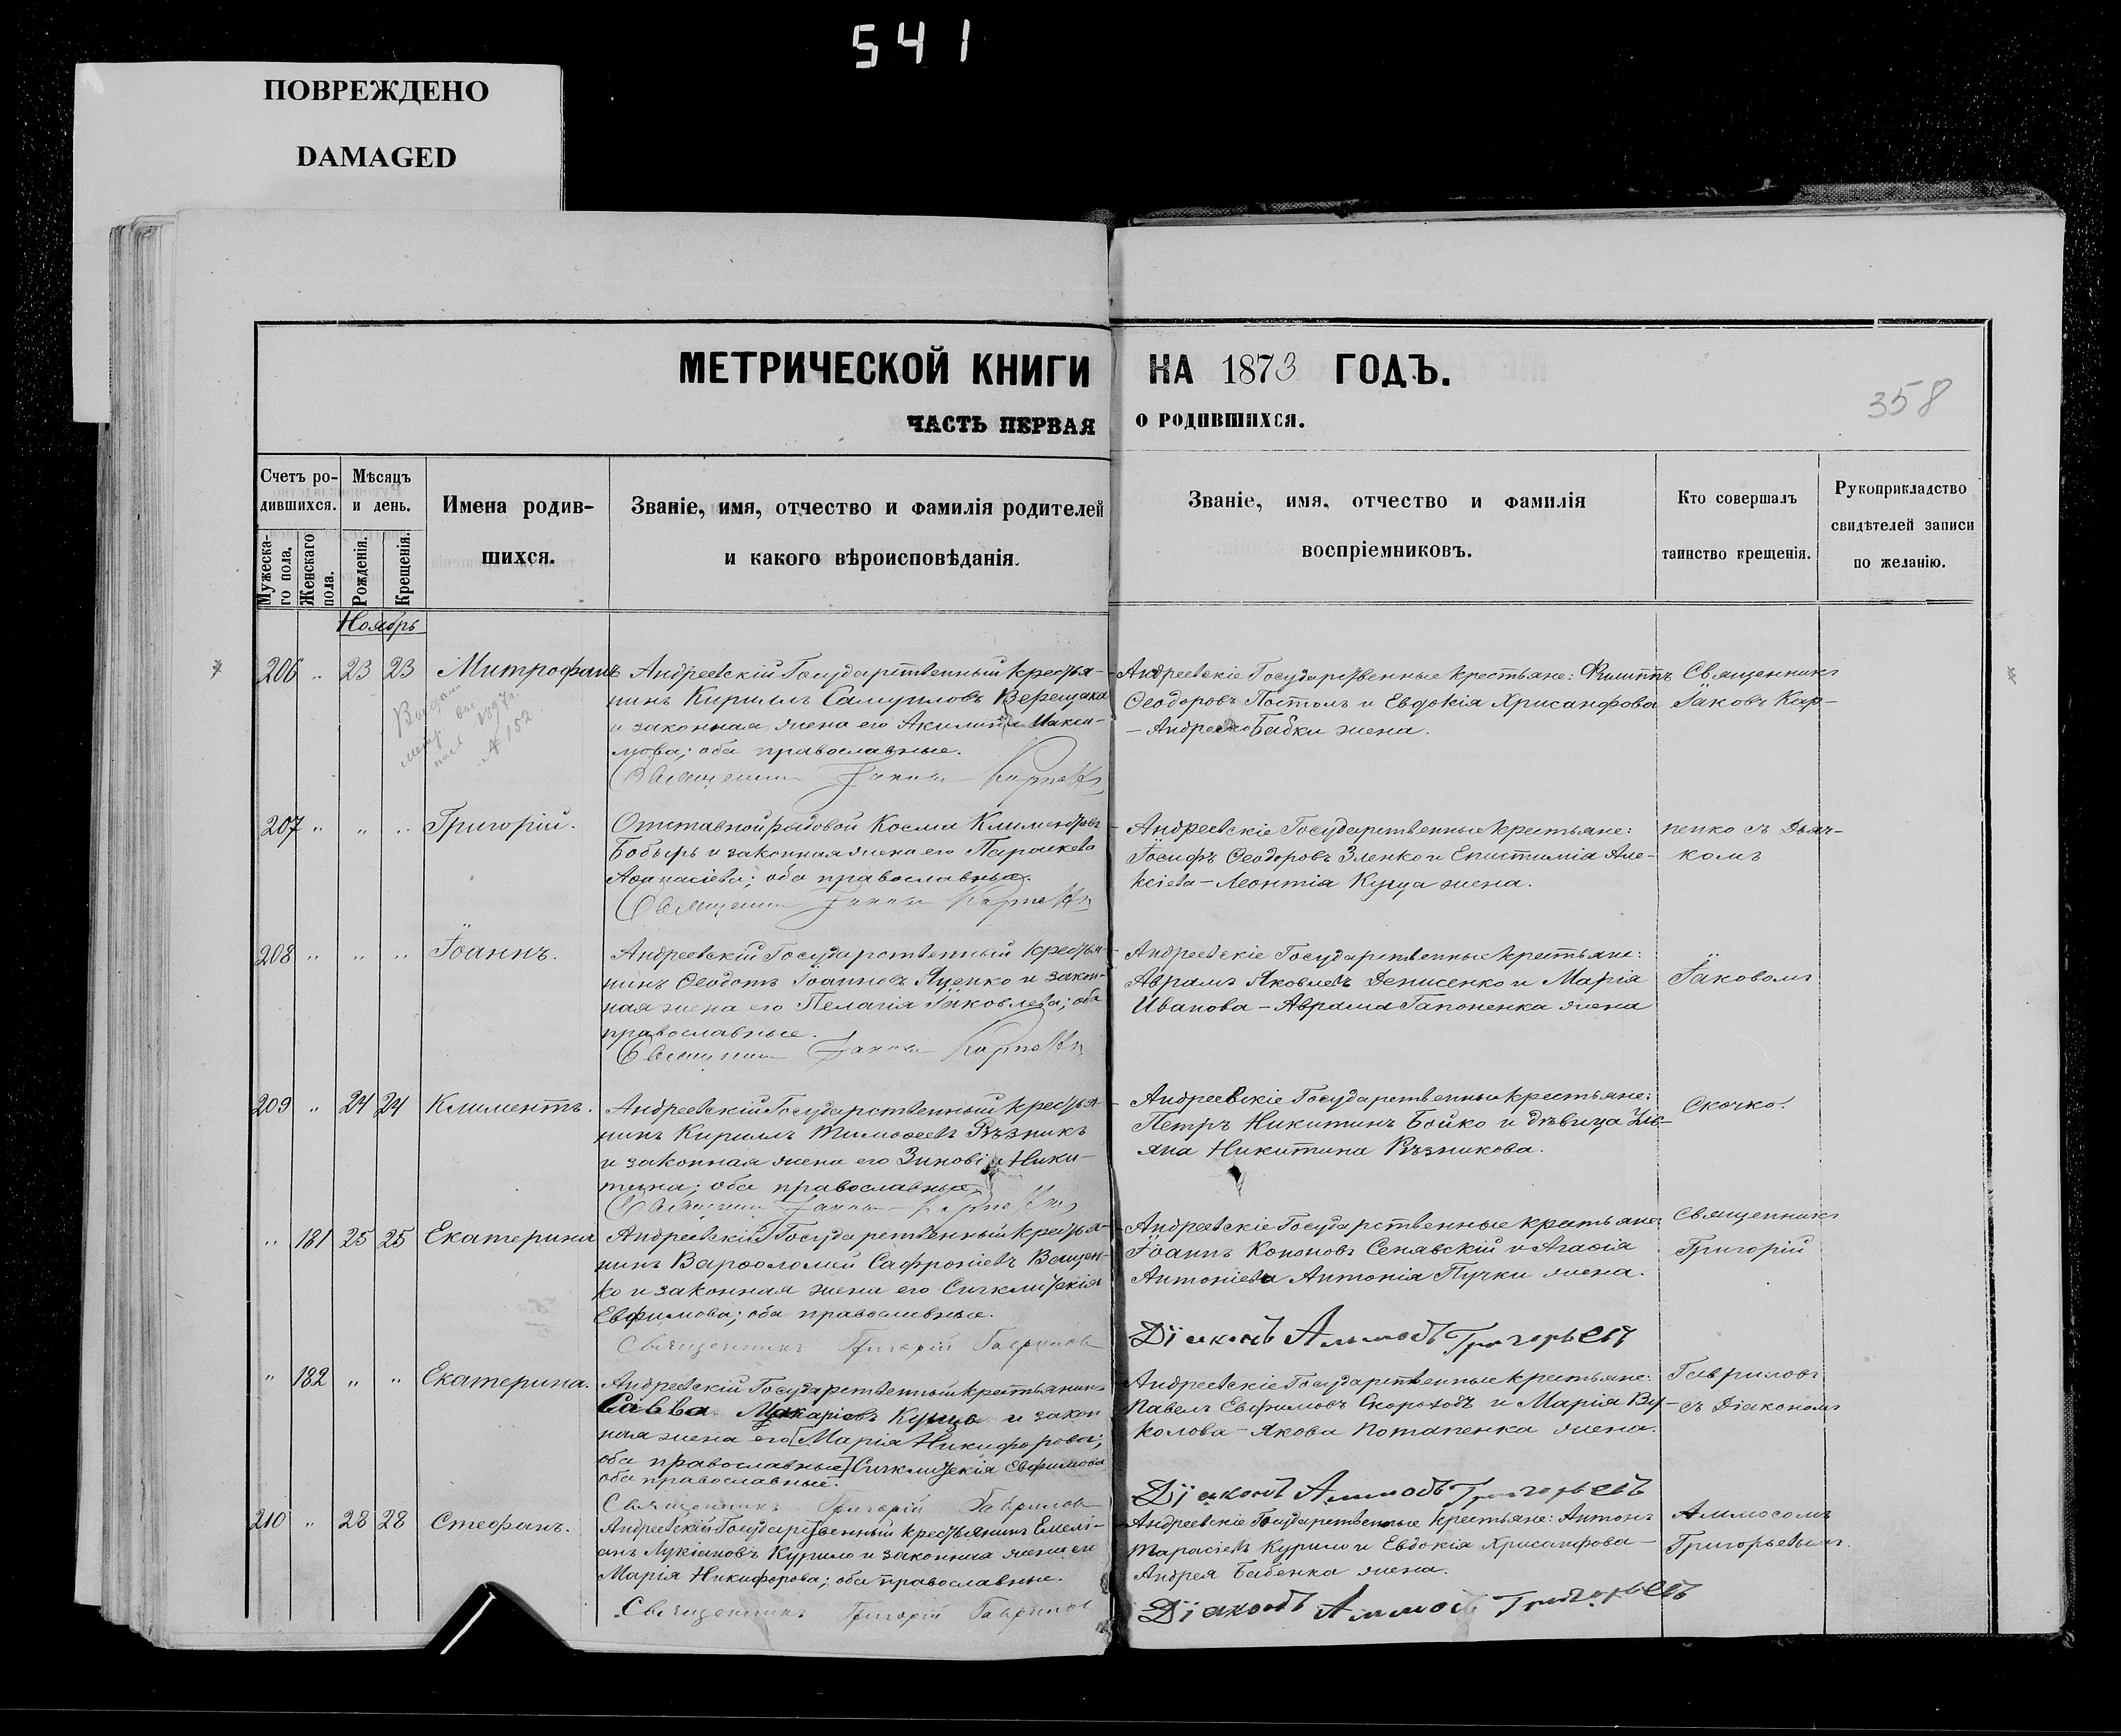 541
ПОВРЕЖДЕНО
DAMAGED
МЕТРИЧЕСКОЙ КНИГИ НА 1873 ГОДЪ.
358
ЧАСТЬ ПЕРВАЯ О РОДИВШИХСЯ.
Счетъ ро-
дившихся.
Мужеска-
го пола.
Женскаго
пола.
Мѣсяцъ
и день.
Рожденія.
Крещенія.
Имена родив-
шихся.
Званіе, имя, отчество и фамилія родителей
и какого вѣроисповѣданія.
Званіе, имя, отчество и фамилія
воспріемниковъ.
Кто совершалъ
таинство крещенія.
Рукоприкладство
свидѣтелей записи
по желанію.
Ноябрь
206 " 23 23 Митрофанъ
1897г.
№ 152
Андреевскій Государственный крестья-
нинъ Кириллъ Самуиловъ Верещака
и законная жена его Акилина Макси-
мова; оба православные.
Священникъ Іаковъ Карпенко
Андреевскіе Государственные крестьяне: Филиппъ
Ѳеодоровъ Постолъ и Евдокія Хрисанфова
– Андрея Бабки жена.
Священникъ
Іаковъ Кар-
207 " " " Григорій.
Отставной рядовой Косма Климентовъ
Бобырь и законная жена его Параскева
Аѳанасіева; оба православные.
Священникъ Іаковъ Карпенко
Андреевскіе Государственные крестьяне:
Іосифъ Ѳеодоровъ Зленко и Епистимія Але-
ксіева – Леонтія Куцца жена.
пенко съ Дьяч-
комъ
208 " " " Іоаннъ.
Андреевскій Государственный крестья-
нинъ Ѳеодотъ Іоанновъ Яценко и закон-
ная жена его Пелагія Іаковлева; оба
православные.
Священникъ Іаковъ Карпенко
Андреевскіе Государственные крестьяне:
Аврамъ Яковлевъ Денисенко и Марія
Иванова – Аврама Гапоненка жена
Іаковомъ
209 " 24 24 Климентъ.
Андреевскій Государственный крестья-
нинъ Кириллъ Тимоѳеевъ Рѣзникъ
и законная жена его Зиновія Ники-
тина; оба православные.
Священникъ Іаковъ Карпенко
Андреевскіе Государственные крестьяне:
Петръ Никитинъ Бойко и дѣвица Улі-
яна Никитина Рѣзникова.
Скочко.
" 181 25 25 Екатерина
Андреевскій Государственный крестья-
нинъ Варѳоломей Сафроніевъ Ващен-
ко и законная жена его Сигклитикія
Евфимова; оба православные.
Священникъ Григорій Гавриловъ
Андреевскіе Государственные крестьяне:
Іоаннъ Кононовъ Сенявскій и Агафія
Антоніева Антонія Пучки жена.
Діаконъ Аммосъ Григорьевъ
Священникъ
Григорій
" 182 " " Екатерина.
Андреевскій Государственный крестьянинъ
Савва Макаріевъ Куцца и закон
ная жена его [Марія Никифорова;
оба православные] Сигклитикія Евфимова
оба православные.
Священникъ Григорій Гавриловъ
Андреевскіе Государственные крестьяне:
Павелъ Евфимовъ Скороходъ и Марія Ву-
колова – Якова Потапенка жена.
Діаконъ Аммосъ Григорьевъ
Гавриловъ
съ Діакономъ
210 " 28 28 Стефанъ.
Андреевскій Государственный крестьянинъ Емелі-
анъ Лукіановъ Курило и законная жена его
Марія Никифорова; оба православные.
Священникъ Григорій Гавриловъ
Андреевскіе Государственные крестьяне: Антонъ
Тарасіевъ Курило и Евдокія Хрисанфова –
Андрея Бабенка жена.
Діаконъ Аммосъ Григорьевъ
Аммосомъ
Григорьевымъ.